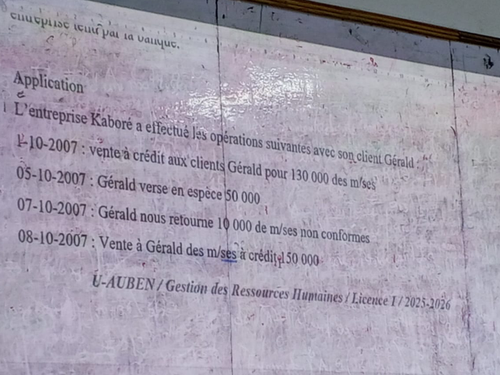 entreprise tenu par la banque.
Application
L'entreprise Kaboré a effectué les opérations suivantes avec son client Gérald :
1-10-2007 : vente à crédit aux clients Gérald pour 130 000 des m/ses
05-10-2007 : Gérald verse en espèce 50 000
07-10-2007 : Gérald nous retourne 10 000 de m/ses non conformes
08-10-2007 : Vente à Gérald des m/ses à crédit 150 000
U-AUBEN / Gestion des Ressources Humaines / Licence 1 / 2025-2026